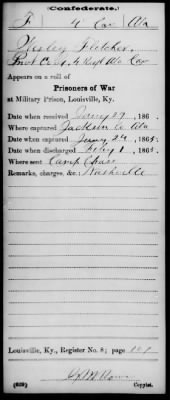 (Confederate.)
F 4 Cav Ala
Wesley Fletcher
Pvt Co , 4 Regt Ala Cav
Appears on a roll of
Prisoners of War
at Military Prison, Louisville, Ky.
Date when received Jany 29, 186 .
Where captured Jackson Co Ala
Date when captured Jany 24, 1865.
Date when discharged Feby 1, 1865.
Where sent Camp Chase
Remarks, charges, &c. Nashville
Louisville, Ky., Register No. 8; page
(639) Copyist.